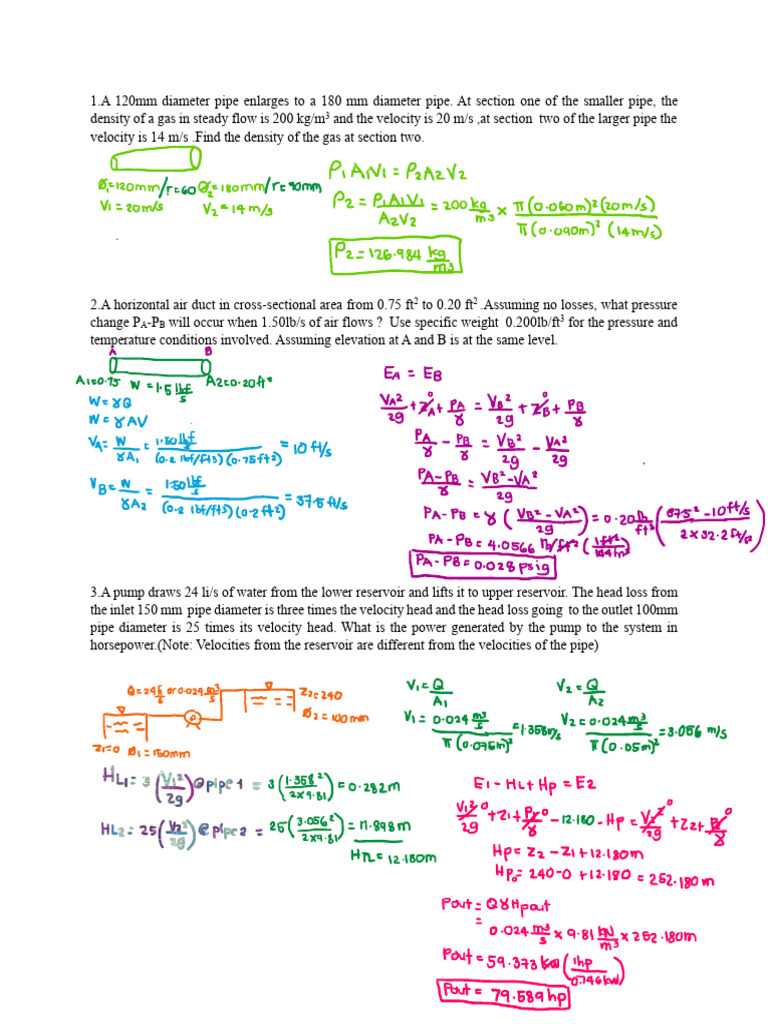 1.A 120mm diameter pipe enlarges to a 180 mm diameter pipe. At section one of the smaller pipe, the
density of a gas in steady flow is 200 kg/m³ and the velocity is 20 m/s ,at section two of the larger pipe the
velocity is 14 m/s .Find the density of the gas at section two.
Ø₁=120mm/r=60 Ø₂=180mm/r=90mm
V₁=20m/s V₂=14m/s
ρ₁A₁V₁=ρ₂A₂V₂
ρ₂=ρ₁A₁V₁/A₂V₂=200 kg/m³ × π(0.060m)²(20m/s)/π(0.090m)²(14m/s)
ρ₂=126.984 kg/m³
2.A horizontal air duct in cross-sectional area from 0.75 ft² to 0.20 ft² .Assuming no losses, what pressure
change P_A-P_B will occur when 1.50lb/s of air flows ? Use specific weight 0.200lb/ft³ for the pressure and
temperature conditions involved. Assuming elevation at A and B is at the same level.
A B
A1=0.75 W=1.5 lbf/s A2=0.20ft²
W=γQ
W=γAV
V_A=W/γA₁=1.50 lbf/s/(0.2 lbf/ft3)(0.75ft²)=10 ft/s
V_B=W/γA₂=1.50 lbf/s/(0.2 lbf/ft3)(0.2ft²)=37.5ft/s
E_A=E_B
V_A²/2g+Z_A⁰+P_A/γ=V_B²/2g+Z_B⁰+P_B/γ
P_A/γ-P_B/γ=V_B²/2g-V_A²/2g
P_A-P_B/γ=V_B²-V_A²/2g
P_A-P_B=γ(V_B²-V_A²/2g)=0.20 lb/ft³(37.5²-10ft/s/2×32.2ft/s²)
P_A-P_B=4.0566 lb/ft²(1ft²/144in²)
P_A-P_B=0.028psig
3.A pump draws 24 li/s of water from the lower reservoir and lifts it to upper reservoir. The head loss from
the inlet 150 mm pipe diameter is three times the velocity head and the head loss going to the outlet 100mm
pipe diameter is 25 times its velocity head. What is the power generated by the pump to the system in
horsepower.(Note: Velocities from the reservoir are different from the velocities of the pipe)
Q=24 li/s or 0.024 m³/s
Z₂=240
Ø₂=100mm
Z₁=0 Ø₁=150mm
V₁=Q/A₁ V₂=Q/A₂
V₁=0.024 m³/s/π(0.075m)²=1.358m/s V₂=0.024 m³/s/π(0.05m)²=3.056 m/s
HL₁=3(V₁²/2g)@pipe 1=3(1.358²/2×9.81)=0.282m
HL₂=25(V₂²/2g)@pipe 2=25(3.056²/2×9.81)=11.898m
HTL=12.180m
E₁-HL+Hp=E2
V₁²⁰/2g+Z₁+P₁⁰/γ-12.180-Hp=V₂²⁰/2g+Z₂+P₂⁰/γ
Hp=Z₂-Z₁+12.180m
Hp=240-0+12.180=252.180m
Pout=QγHpout
=0.024 m³/s×9.81 kN/m³×252.180m
Pout=59.373kW(1hp/0.746kW)
Pout=79.589hp